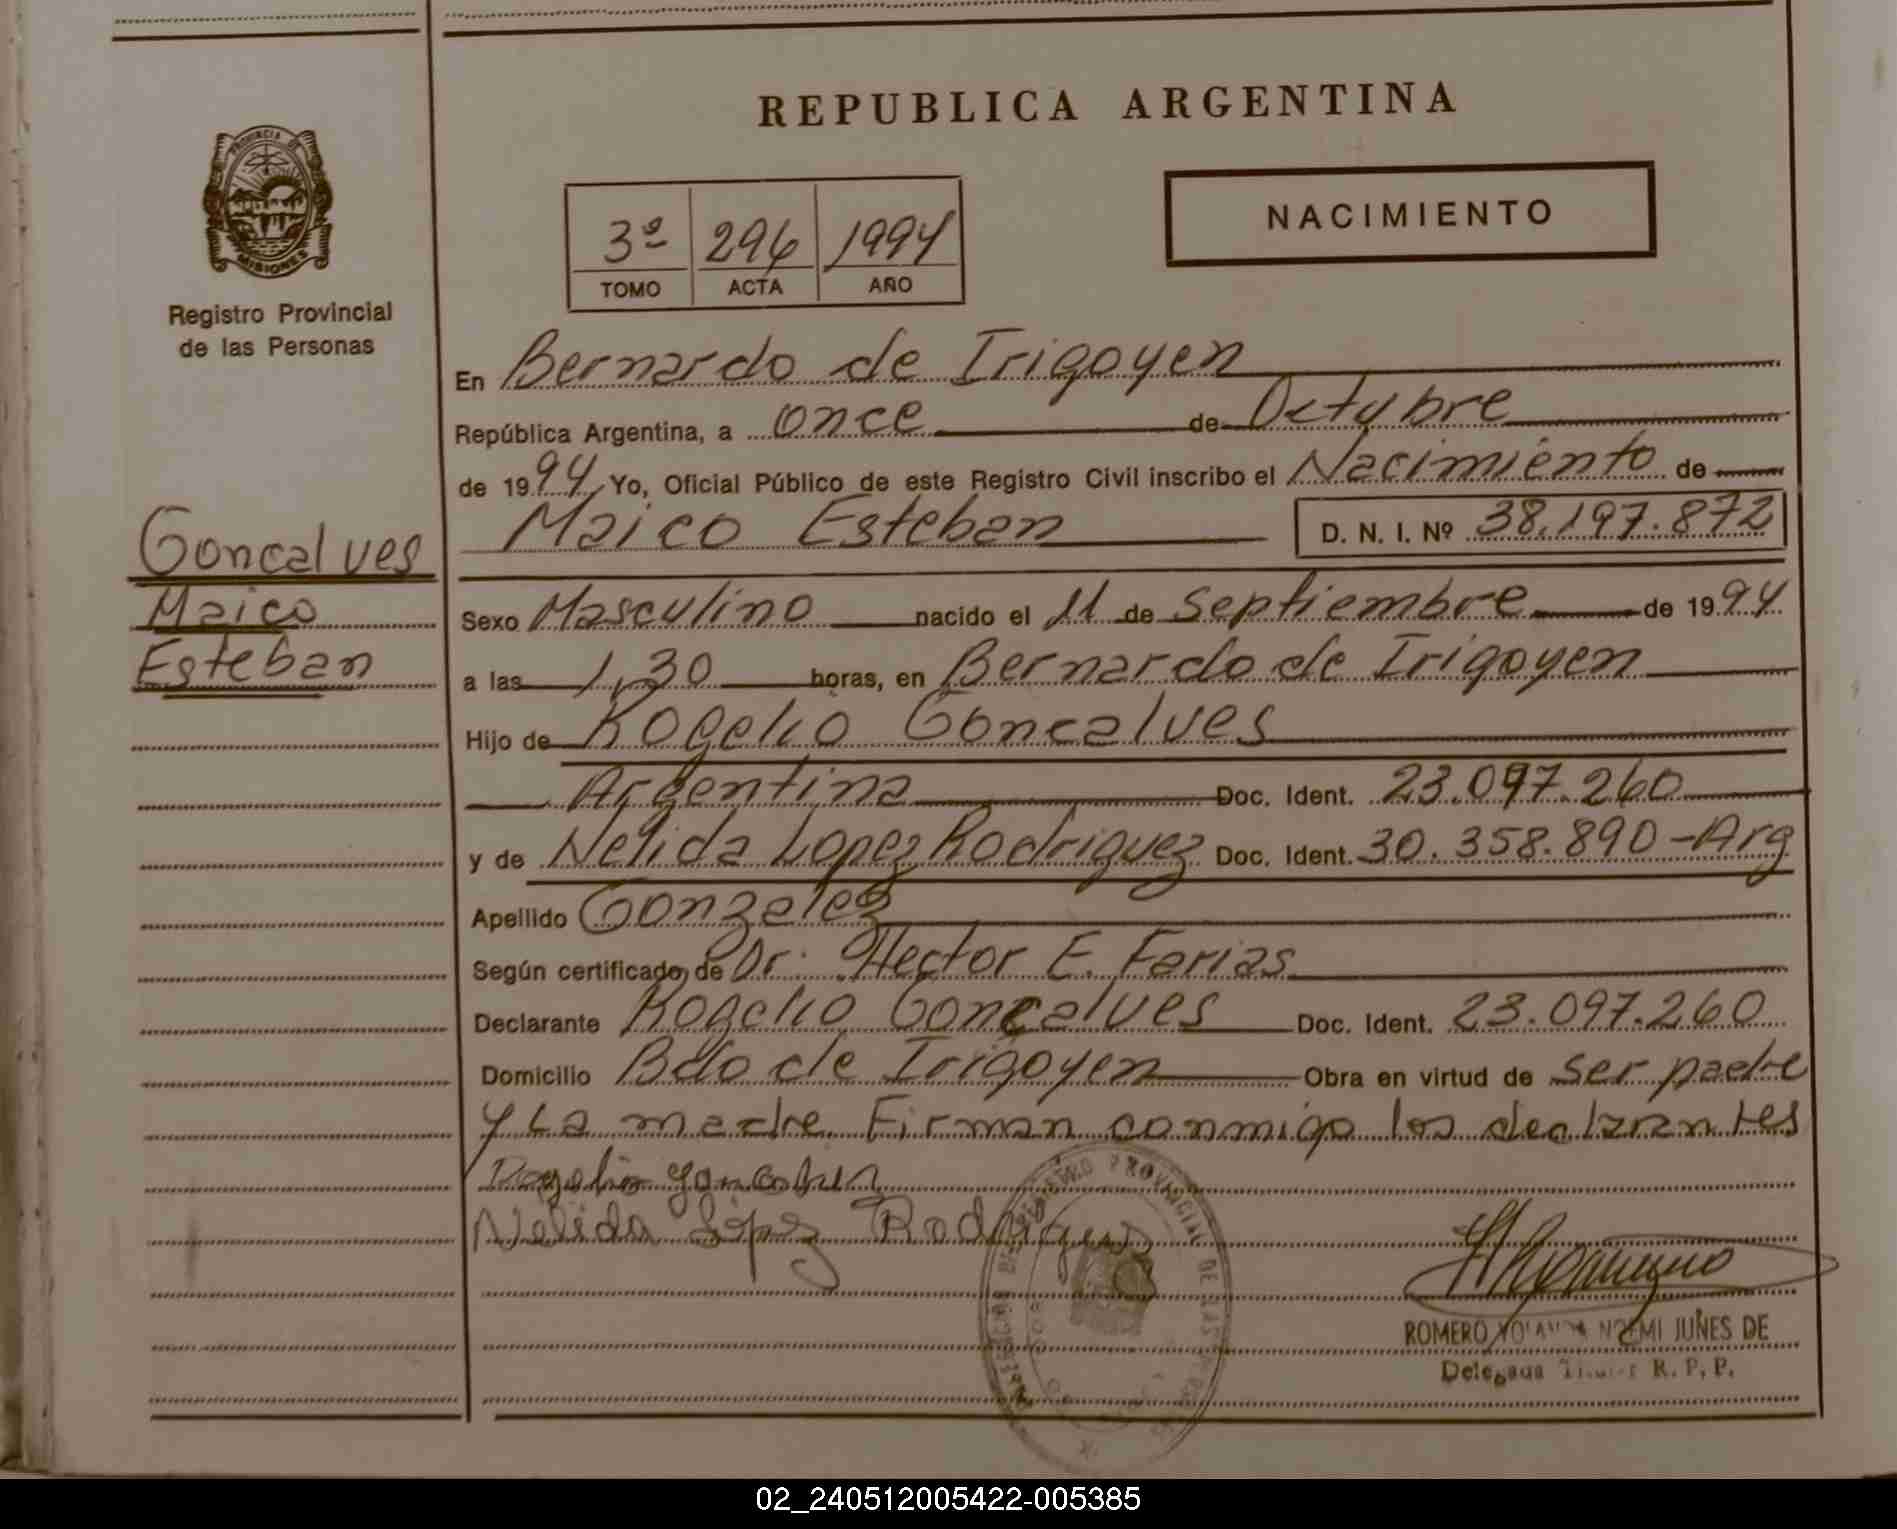 REPUBLICA ARGENTINA
PROVINCIA DE
MISIONES
Registro Provincial
de las Personas
NACIMIENTO
3º 296 1994
TOMO ACTA AÑO
En Bernardo de Irigoyen
República Argentina, a once de Octubre
de 1994 Yo, Oficial Público de este Registro Civil inscribo el Nacimiento de
Maico Esteban D. N. I. Nº 38.197.872
Goncalves
Maico
Esteban
Sexo Masculino nacido el 11 de Septiembre de 1994
a las 1,30 horas, en Bernardo de Irigoyen
Hijo de Rogelio Goncalves
Argentina Doc. Ident. 23.097.260
y de Nelida Lopez Rodriguez Doc. Ident. 30.358.890-Arg
Apellido Gonzalez
Según certificado de Dr. Hector E. Farias
Declarante Rogelio Goncalves Doc. Ident. 23.097.260
Domicilio Bdo de Irigoyen Obra en virtud de ser padre
y La madre. Firman conmigo los declarantes
Nelida López Rodriguez
REGISTRO PROVINCIAL DE LAS
ROMERO YOLANDA NOEMI JUNES DE
Delegada Titular R. P. P.
02_240512005422-005385